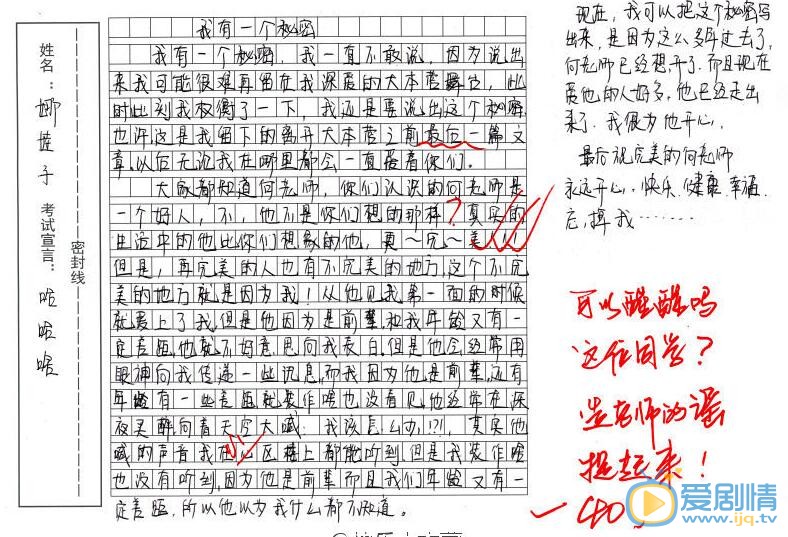 姓名：娜扎子 考试宣言：哈哈哈
密封线
我有一个秘密
我有一个秘密，我一直不敢说，因为说出
来我可能很难再留在我深爱的大本营舞台，此
时此刻我权衡了一下，我还是要说出这个秘密
也许，这是我留下的离开大本营之前最后一篇文
章，以后无论我在哪里都会一直爱着你们。
大家都知道何老师，你们认识的何老师是
一个好人，不，他不是你们想的那样？真实的
生活中的他比你们想象的他，更～完～美！
但是，再完美的人也有不完美的地方，这个不完
美的地方就是因为我！从他见我第一面的时候
就爱上了我，但是他因为是前辈和我年龄又有一
定差距，他就不好意思向我表白，但是他会经常用
眼神向我传递一些讯息，而我因为他是前辈，还有
年龄有一些差距就装作啥也没有见，他经常在深
夜买醉，向着天空大喊：我该怎么办！？！，其实他
喊的声音我在小区楼上都能听到，但是我装作啥
也没有听到，因为他是前辈而且我们年龄又有一
定差距，所以他以为我什么都不知道。
现在，我可以把这个秘密写
出来，是因为这么多年过去了，
何老师已经想开了，而且现在
爱他的人好多，他已经走出
来了，我很为他开心，
最后祝完美的何老师
永远开心、快乐、健康、幸福
忘掉我……
可以醒醒吗
这位同学？
造老师的谣
提起来！
爱剧情
www.ijq.tv